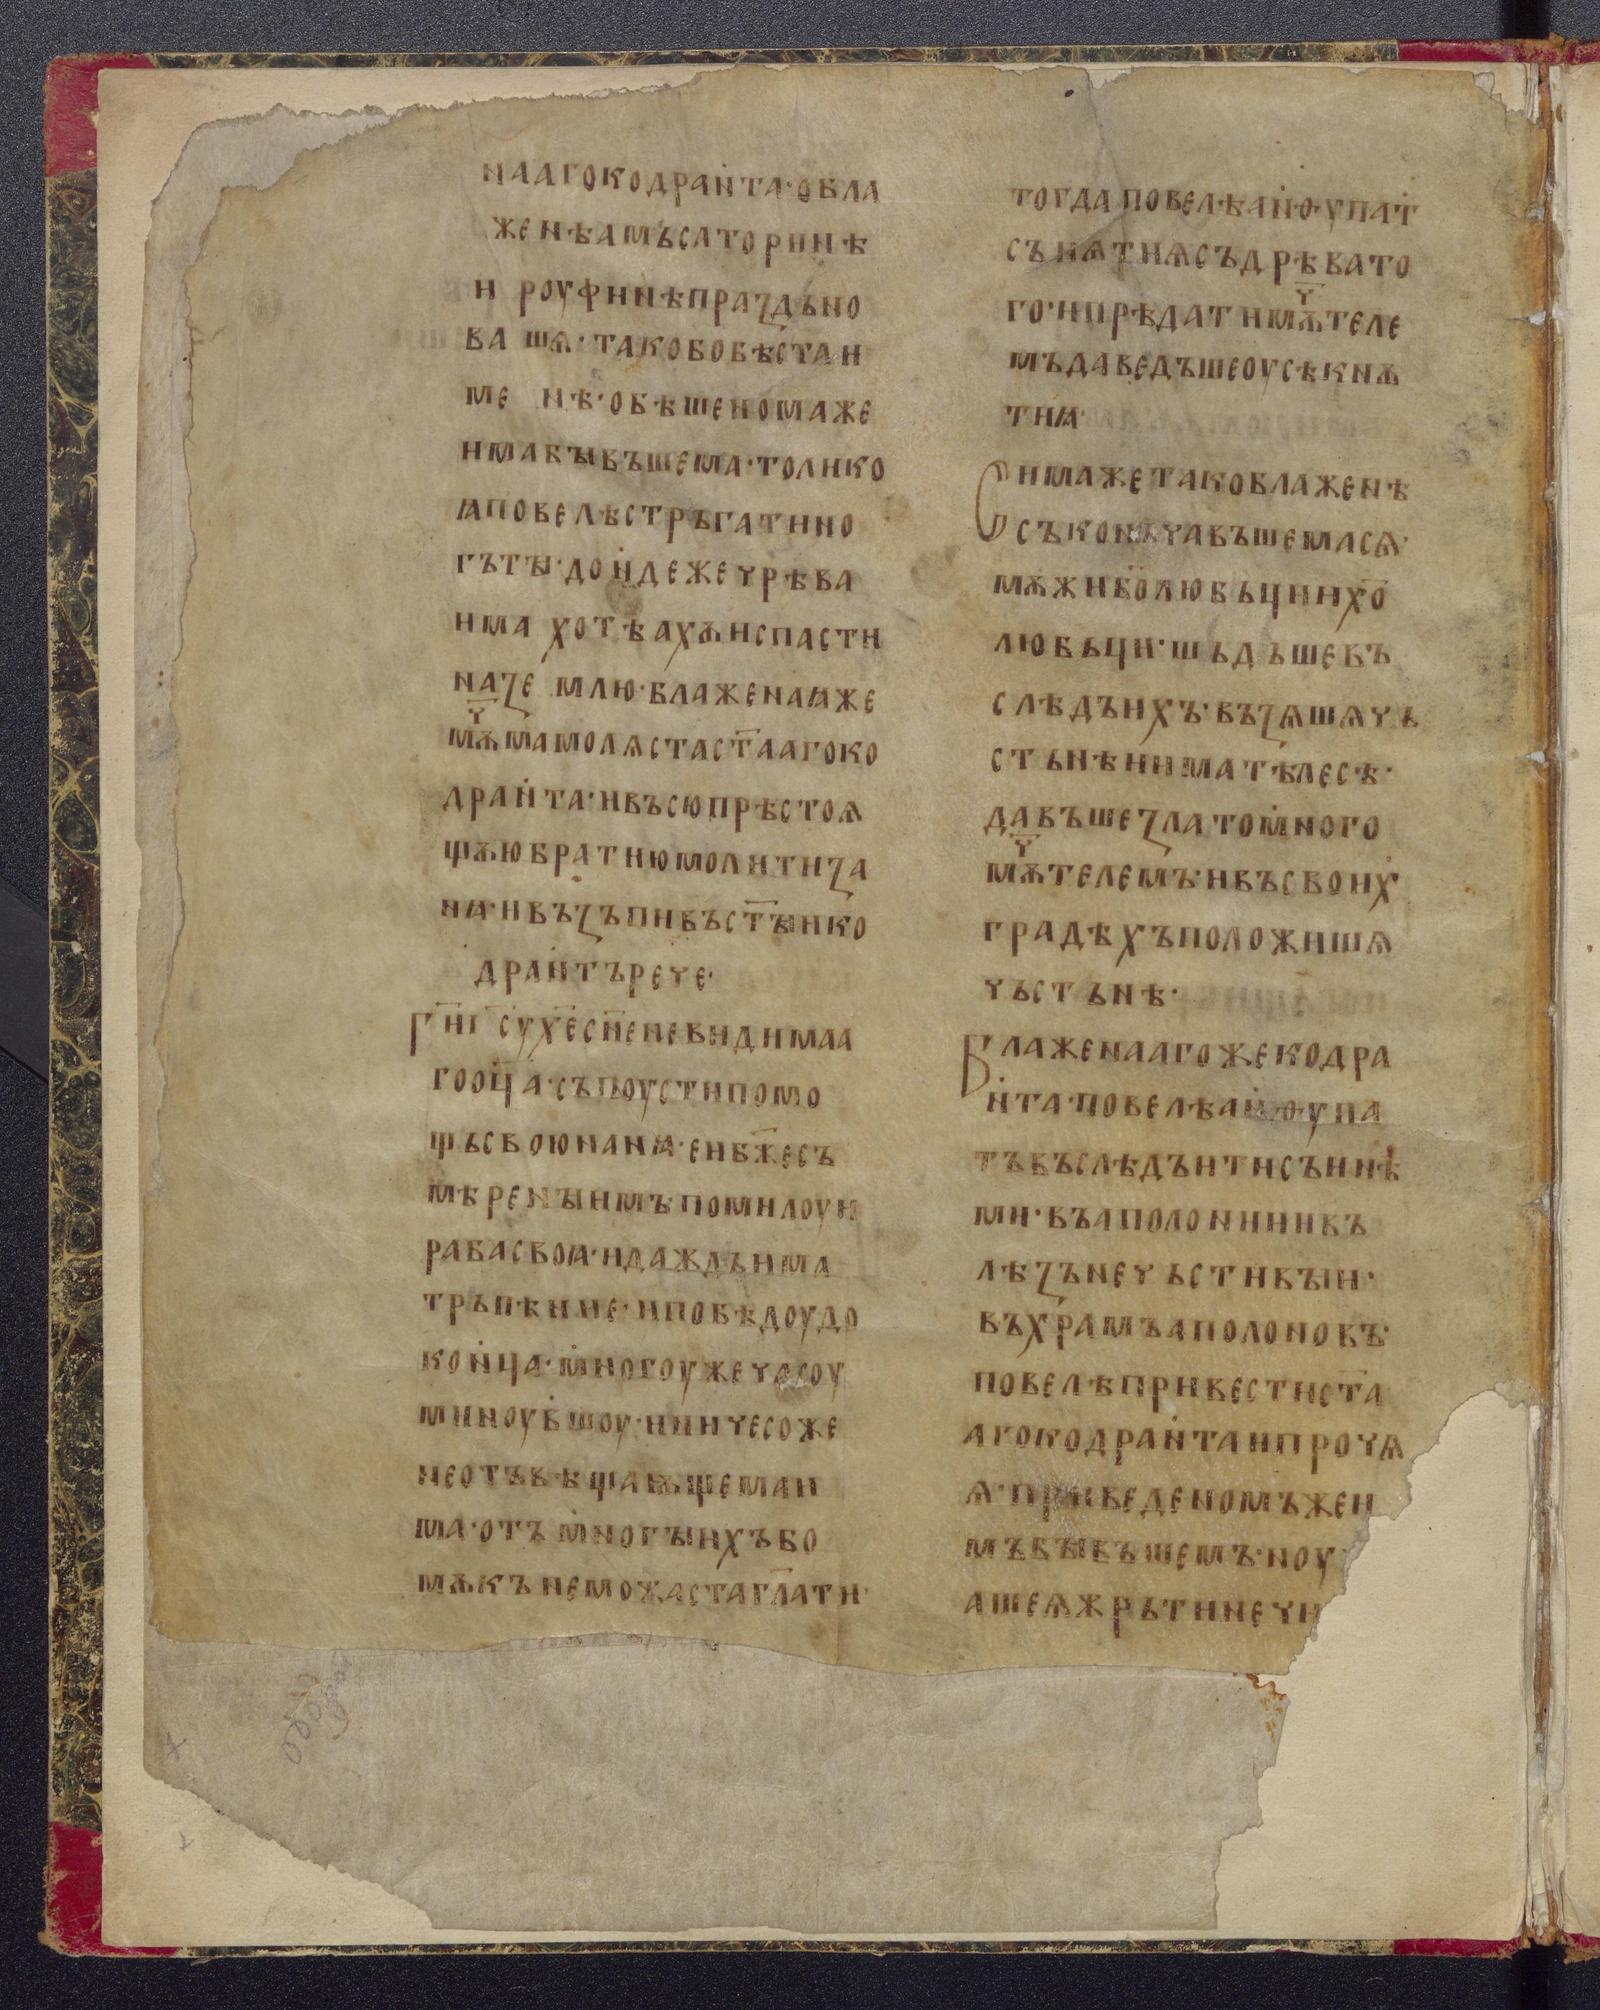 нааго кодран҄та· о бла
женѣама сатѹринѣ
и роуфинѣ празⸯдьно
ва шѧ· тако бо бѣста и
ме нѣ· обѣшенома же
има бꙑвъшема· толико
ꙗ повелѣ стръгати но
гътꙑ· дон҄деже чрѣва
има хотѣахѫ испасти
на зе млю· блаженаꙗ же
мѫч҃ма молѧста ст҃ааго ко
дран҄та· и вьсю прѣстоѧ
щѫю братию молити за
нꙗ· и възъпивъ ст҃ꙑи ко
дран҄тъ рече·
Г҃и і҃су х҃е сн҃е невидимаа
го оц҃а· съпоусти помо
щь свою на нꙗ· еи б҃же съ
мѣренꙑимъ помилоуи
раба своꙗ· и даждь има
трьпѣние· и побѣдоу до
кон҄ца· м҄ногоу же часоу
миноувъшоу· и ничесоже
не отъвѣщавъшема и
ма· отъ м҄ногꙑихъ бо
мѫкъ не можаста гл҃ати·
тогда повелѣ ан҄ѳупат҄
сънѧти ѩ съ дрѣва то
го· и прѣдати мѫч҃теле
мъ да ведъше оусѣкнѫ
ти ꙗ·
Сима же тако блаженѣ
съконьчавъшема сѧ·
мѫжи б҃олюбьци и х҃о
любьци· шьдъше въ
слѣдъ ихъ· възѧшѧ чь
стьнѣи има тѣлесѣ·
давъше злато м҄ного
мѫч҃телемъ· и въ своих҄
градѣхъ положишѧ
чьстьнѣ·
Блаженааго же кодра
н҄та· повелѣ ан҄ѳупа
тъ въслѣдъ ити съ ни
ми· въ аполонии и въ
лѣзъ нечьстивꙑи·
въ храмъ аполоновъ·
повелѣ привести ст҃а
аго кодран҄та и прочѧ
ѩ· приведеномъ же и
мъ бꙑвъшемъ· ноу